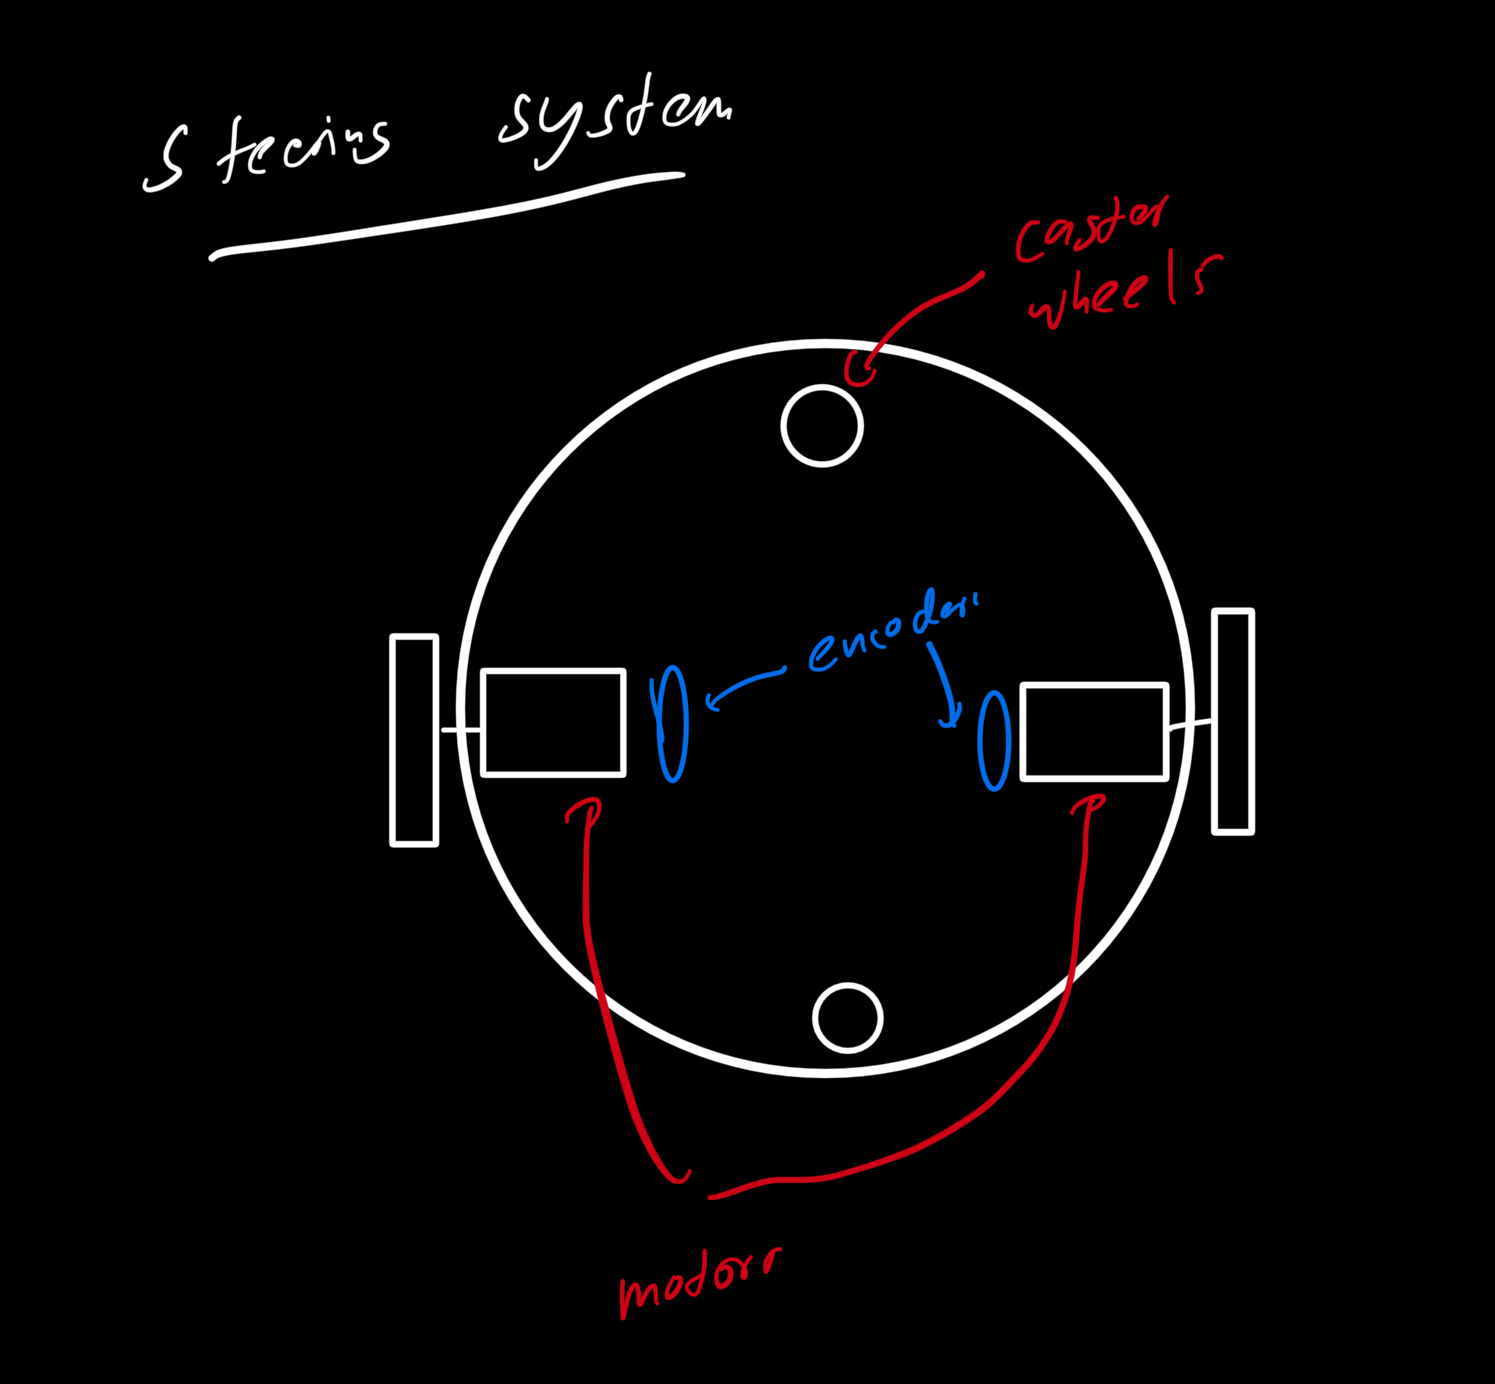 Steering system
caster
wheels
encoders
motors